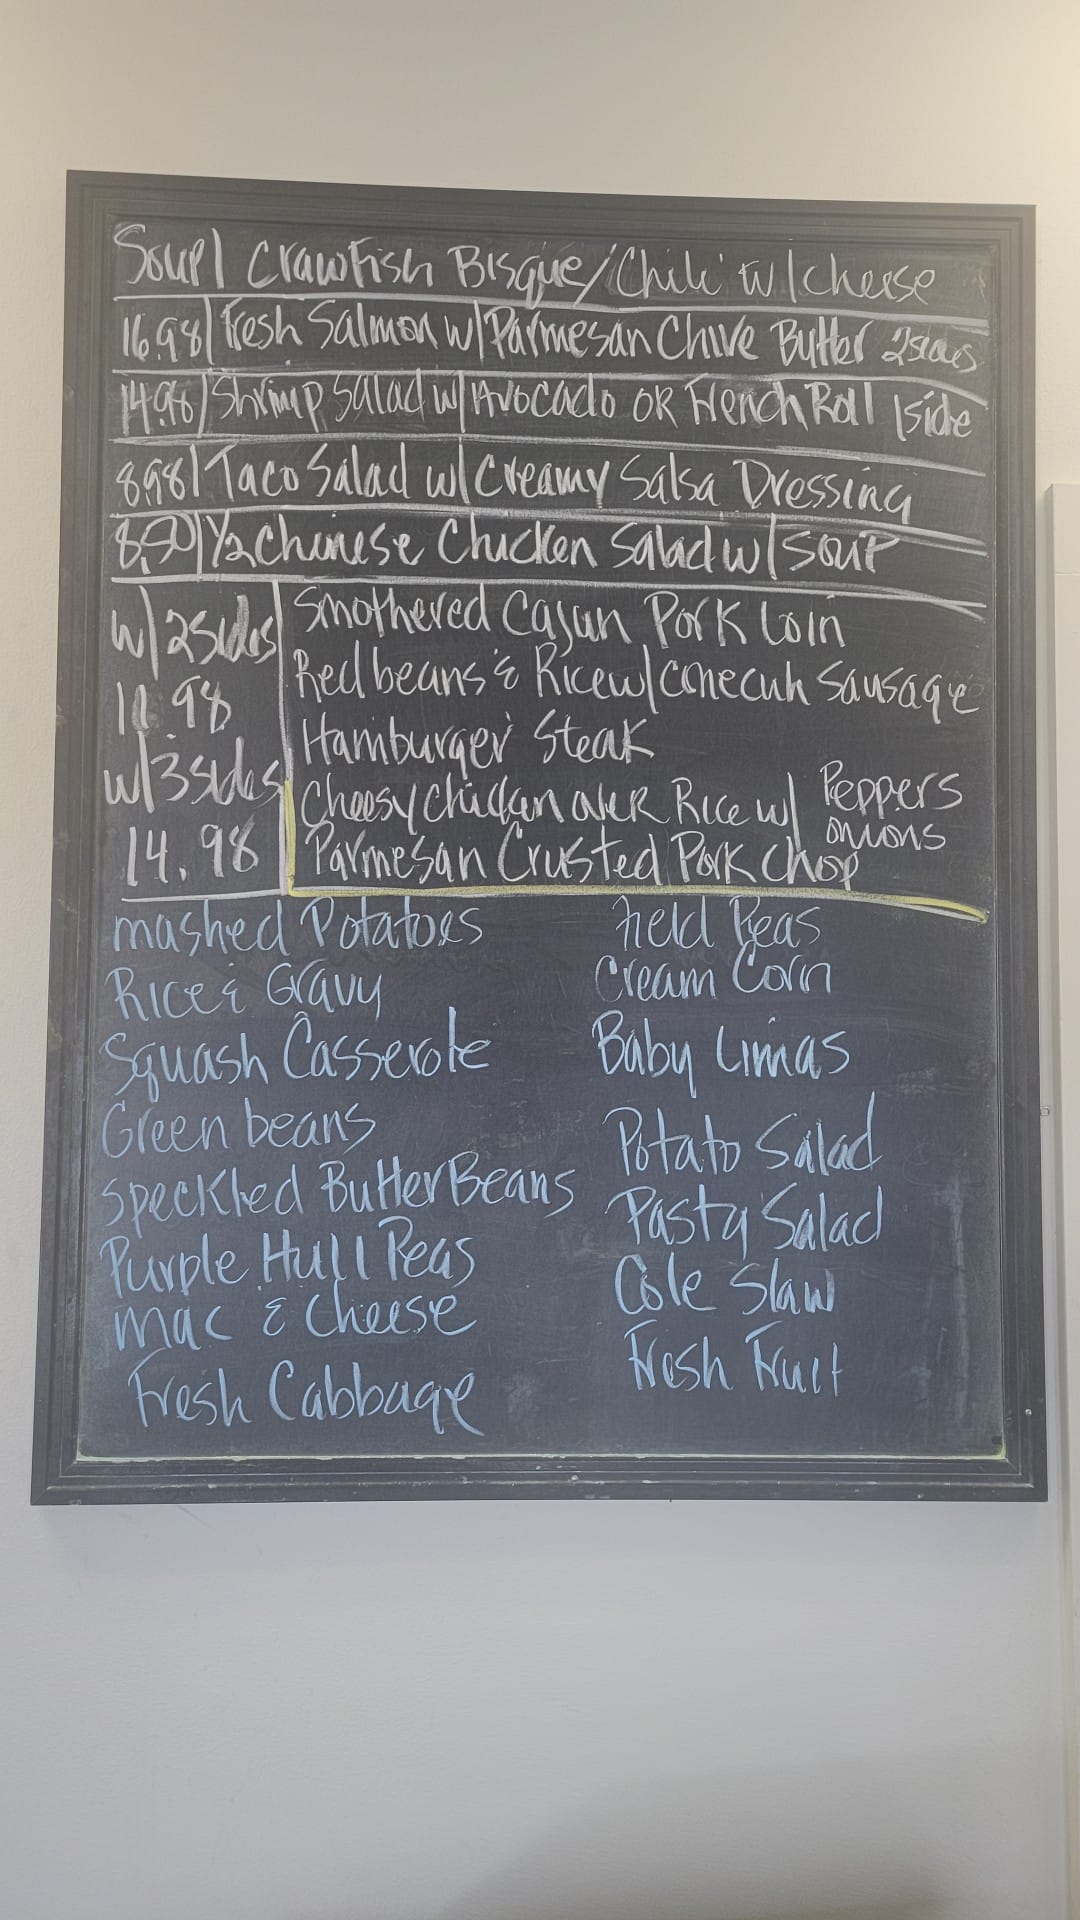 Soup | Crawfish Bisque / Chili w/ cheese
16.98 | Fresh Salmon w/ Parmesan Chive Butter 2 sides
14.98 | Shrimp Salad w/ Avocado or French Roll 1 side
8.98 | Taco Salad w/ Creamy Salsa Dressing
8.50 | 1/2 Chinese Chicken Salad w/ Soup
w/ 2 sides
11.98
w/ 3 sides
14.98
Smothered Cajun Pork Loin
Red beans & Rice w/ Conecuh Sausage
Hamburger Steak
Cheesy chicken over Rice w/ Peppers onions
Parmesan Crusted Pork Chop
mashed Potatoes
Rice & Gravy
Squash Casserole
Green beans
Speckled Butter Beans
Purple Hull Peas
mac & Cheese
Fresh Cabbage
field Peas
Cream Corn
Baby Limas
Potato Salad
Pasta Salad
Cole Slaw
Fresh Fruit